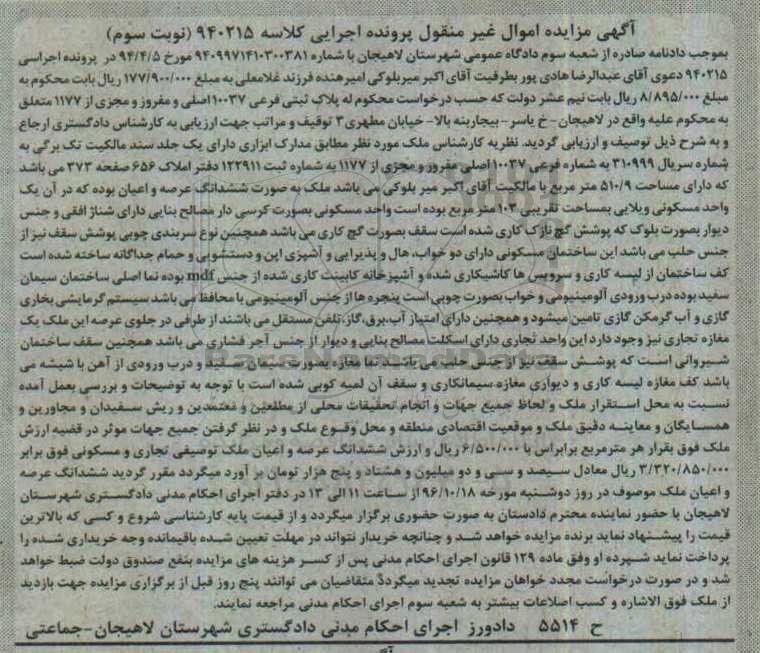 آگهی مزایده اموال غیر منقول پرونده اجرایی کلاسه ۹۴۰۲۱۵ (نوبت سوم)
بموجب دادنامه صادره از شعبه سوم دادگاه عمومی شهرستان لاهیجان با شماره ۹۴۰۹۹۷۱۴۱۰۳۰۰۳۸۱ مورخ ۹۴/۴/۵ در پرونده اجراسی
۹۴۰۲۱۵ دعوی آقای عبدالرضا هادی پور بطرفیت آقای اکبر میربلوکی امیرهنده فرزند غلامعلی به مبلغ ۱۷۷/۹۰۰/۰۰۰ ریال بابت محکوم به
مبلغ ۸/۸۹۵/۰۰۰ ریال بابت نیم عشر دولت که حسب درخواست محکوم له پلاک ثبتی فرعی ۱۰۰۳۷ اصلی و مفروز و مجزی از ۱۱۷۷ متعلق
به محکوم علیه واقع در لاهیجان- خ یاسر- بیجاربنه بالا- خیابان مطهری۳ توقیف و مراتب جهت ارزیابی به کارشناس دادگستری ارجاع
و به شرح ذیل توصیف و ارزیابی گردید. نظریه کارشناس ملک مورد نظر مطابق مدارک ابرازی دارای یک جلد سند مالکیت تک برگی به
شماره سریال ۳۱۰۹۹۹ به شماره فرعی ۱۰۰۳۷ اصلی مفروز و مجزی از ۱۱۷۷ به شماره ثبت ۱۲۲۹۱۱ دفتر املاک ۶۵۶ صفحه ۳۷۳ می باشد
که دارای مساحت ۵۱۰/۹ متر مربع با مالکیت آقای اکبر میر بلوکی می باشد ملک به صورت ششدانگ عرصه و اعیان بوده که در آن یک
واحد مسکونی ویلایی بمساحت تقریبی ۱۰۳ متر مربع بوده است واحد مسکونی بصورت کرسی دار مصالح بنایی دارای شناژ افقی و جنس
دیوار بصورت بلوک که پوشش گچ نازک کاری شده است سقف بصورت گچ کاری می باشد همچنین نوع سربندی چوبی پوشش سقف نیز از
جنس حلب می باشد این ساختمان مسکونی دارای دو خواب، هال و پذیرایی و آشپزی اپن و دستشویی و حمام جداگانه ساخته شده است
کف ساختمان از لیسه کاری و سرویس ها کاشیکاری شده و آشپزخانه کابینت کاری شده از جنس mdf بوده نما اصلی ساختمان سیمان
سفید بوده درب ورودی آلومینیومی و خواب بصورت چوبی است پنجره ها از جنس آلومینیومی با محافظ می باشد سیستم گرمایشی بخاری
گازی و آب گرمکن گازی تامین میشود و همچنین دارای امتیاز آب،برق،گاز،تلفن مستقل می باشند از طرفی در جلوی عرصه این ملک یک
مغازه تجاری نیز وجود دارد این واحد تجاری دارای اسکلت مصالح بنایی و دیوار از جنس آجر فشاری می باشد همچنین سقف ساختمان
شیروانی است که پوشش سقف نیز از جنس حلب می باشد نما مغازه بصورت سیمان سفید و درب ورودی از آهن با شیشه می
باشد کف مغازه لیسه کاری و دیواری مغازه سیمانکاری و سقف آن لمبه کوبی شده است با توجه به توضیحات و بررسی بعمل آمده
نسبت به محل استقرار ملک و لحاظ جمیع جهات و انجام تحقیقات محلی از مطلعین و معتمدین و ریش سفیدان و مجاورین و
همسایگان و معاینه دقیق ملک و موقعیت اقتصادی منطقه و محل وقوع ملک و در نظر گرفتن جمیع جهات موثر در قضیه ارزش
ملک فوق بقرار هر مترمربع برابراس با ۶/۵۰۰/۰۰۰ ریال و ارزش ششدانگ عرصه و اعیان ملک توصیفی تجاری و مسکونی فوق برابر
۳/۳۲۰/۸۵۰/۰۰۰ ریال معادل سیصد و سی و دو میلیون و هشتاد و پنج هزار تومان بر آورد میگردد مقرر گردید ششدانگ عرصه
و اعیان ملک موصوف در روز دوشنبه مورخه ۹۶/۱۰/۱۸ از ساعت ۱۱ الی ۱۳ در دفتر اجرای احکام مدنی دادگستری شهرستان
لاهیجان با حضور نماینده محترم دادستان به صورت حضوری برگزار میگردد و از قیمت پایه کارشناسی شروع و کسی که بالاترین
قیمت را پیشنهاد نماید برنده مزایده خواهد شد و چنانچه خریدار نتواند در مهلت تعیین شده باقیمانده وجه خریداری شده را
پرداخت نماید شپرده او وفق ماده ۱۲۹ قانون اجرای احکام مدنی پس از کسر هزینه های مزایده بنفع صندوق دولت ضبط خواهد
شد و در صورت درخواست مجدد خواهان مزایده تجدید میگردد متقاضیان می توانند پنج روز قبل از برگزاری مزایده جهت بازدید
از ملک فوق الاشاره و کسب اصلاعات بیشتر به شعبه سوم اجرای احکام مدنی مراجعه نمایند.
ح ۵۵۱۴ دادورز اجرای احکام مدنی دادگستری شهرستان لاهیجان-جماعتی
ParsNamadData